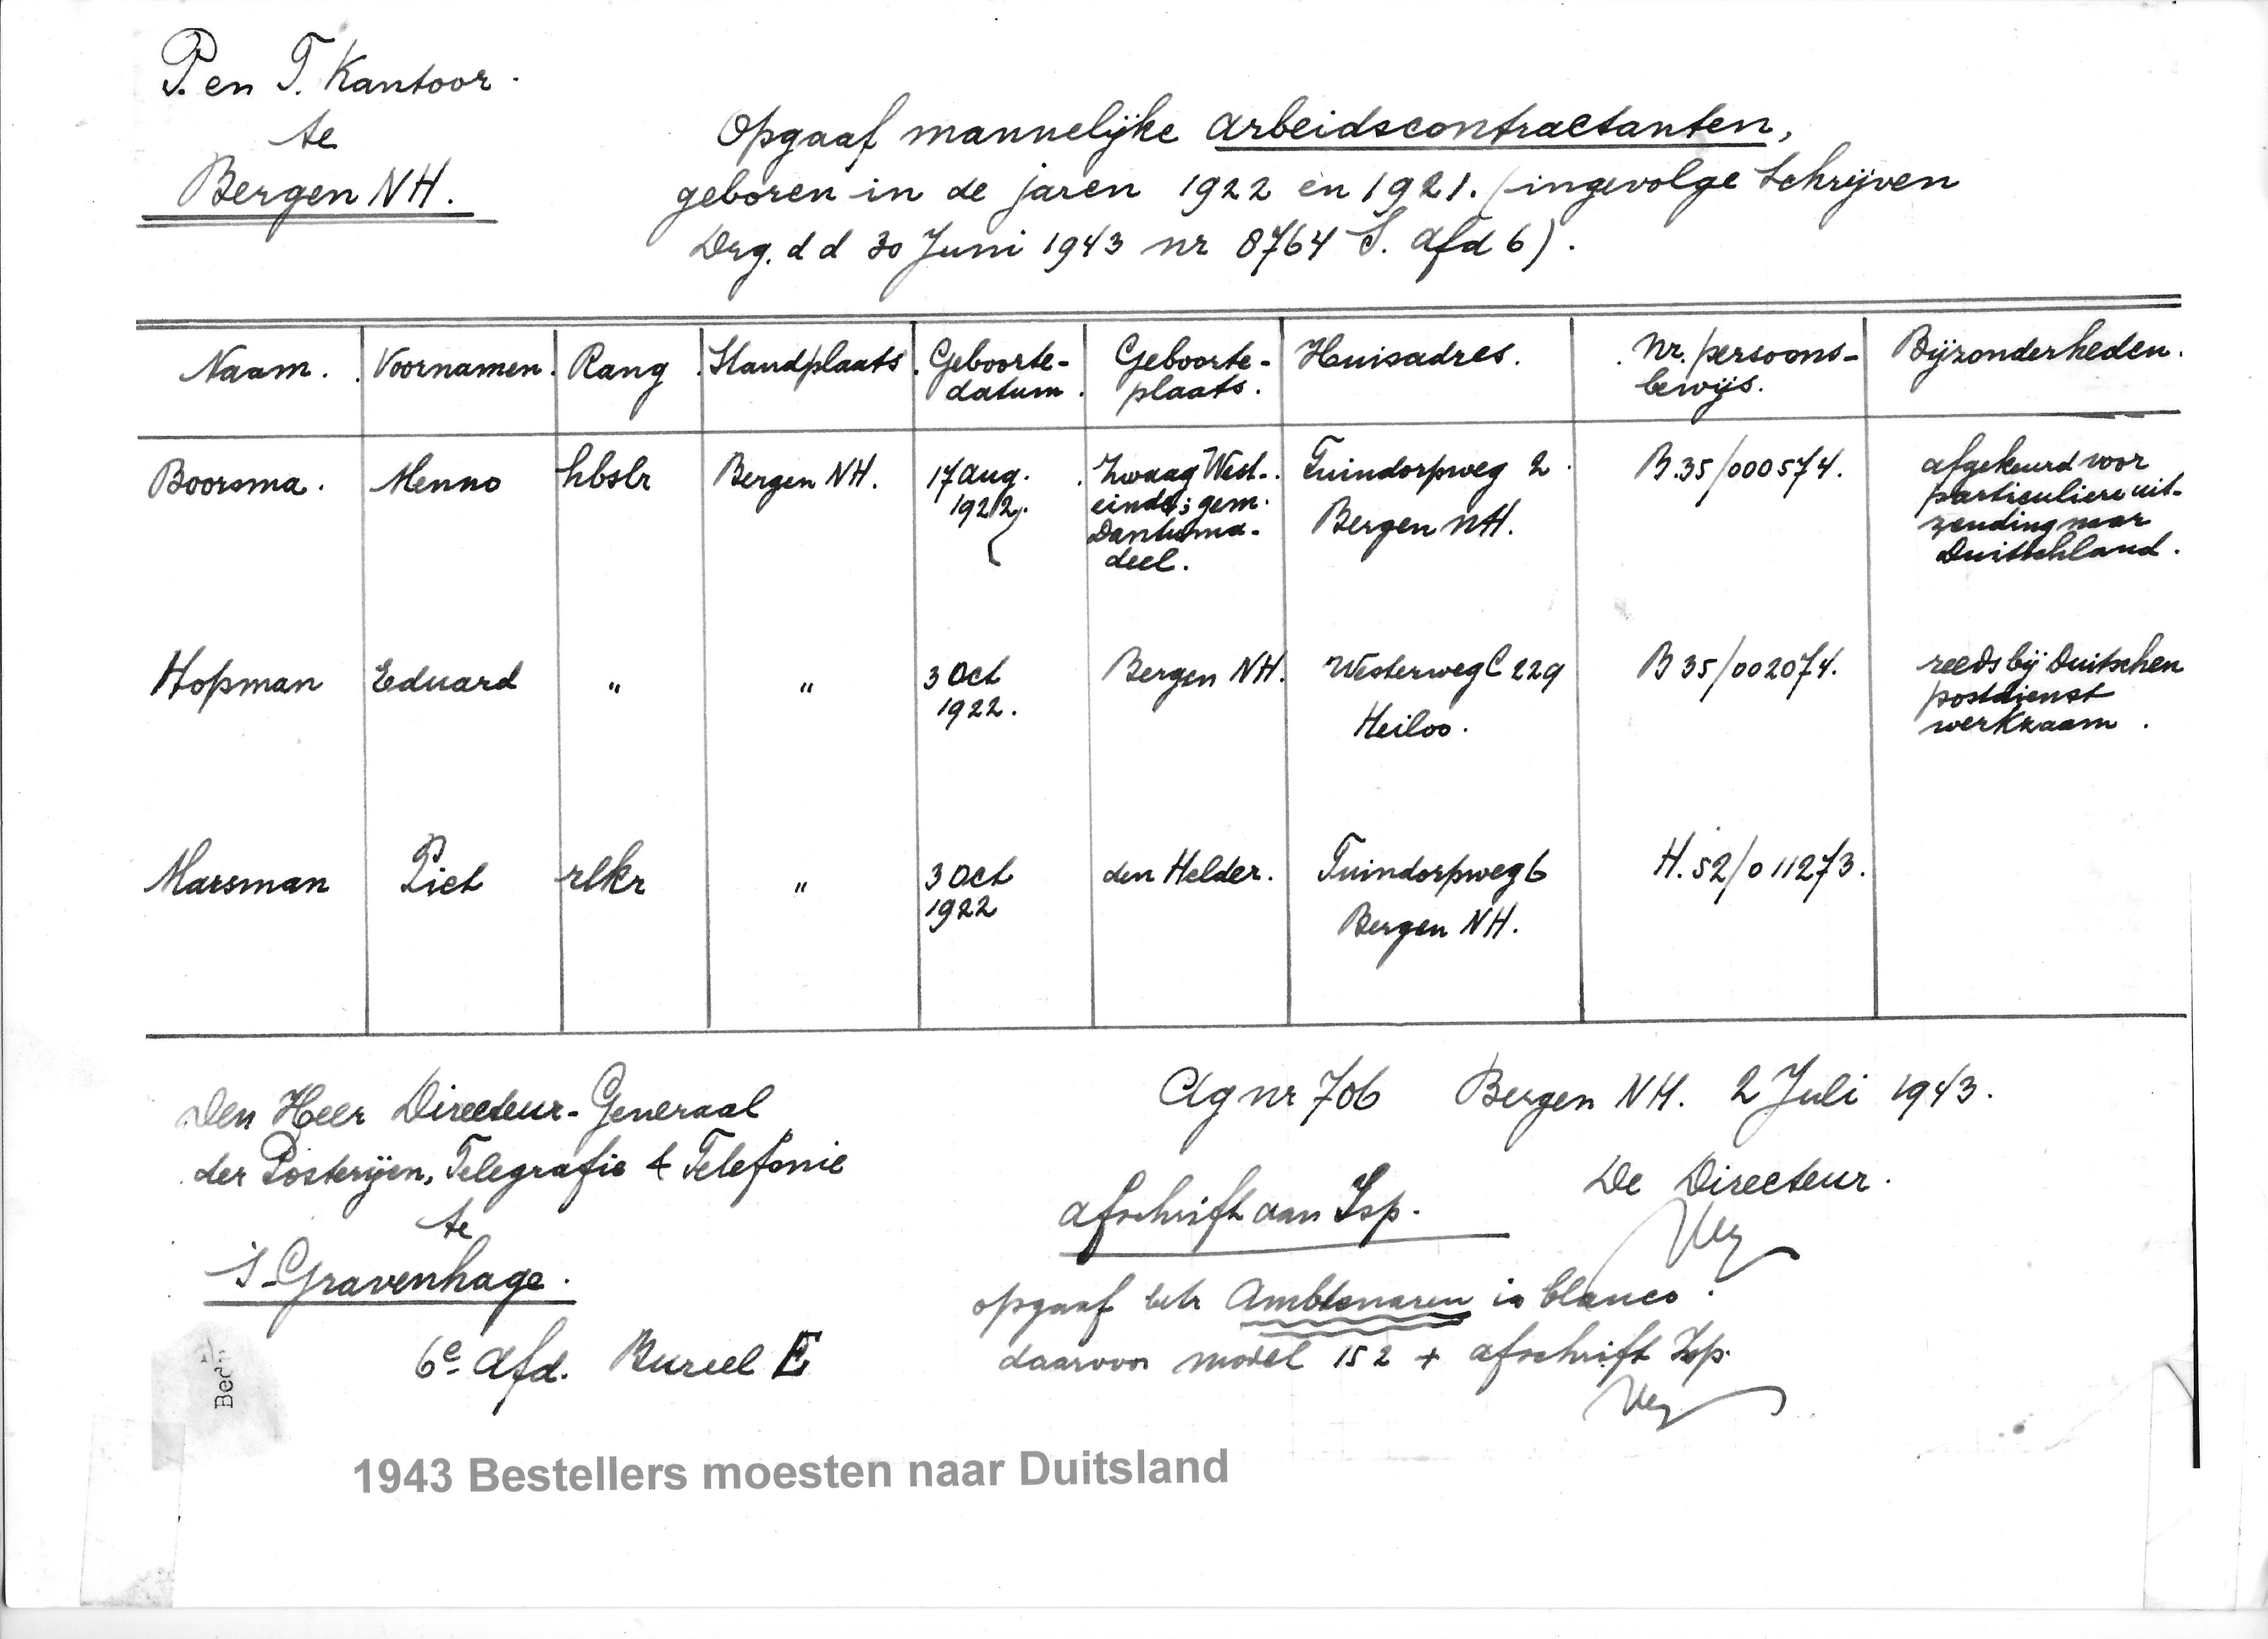 P. en T. Kantoor.
te
Bergen NH.
Opgaaf mannelijke arbeidscontractanten,
geboren in de jaren 1922 en 1921. (ingevolge schrijven
Drg. d d 30 Juni 1943 nr 8764 S. afd 6).
Naam. Voornamen. Rang Standplaats. Geboorte- Geboorte- Huisadres. Nr. persoons- Bijzonderheden.
datum. plaats. bewijs.
Boorsma. Menno hbslr Bergen NH. 17 aug. Zwaag West- Tuindorpweg 2. B.35/000574. afgekeurd voor
1922. einde; gem. Bergen NH. particuliere uit-
Dantuma- zending naar
deel. Duitschland.
Hopman Eduard " " 3 Oct Bergen NH. Westerweg C 229 B 35/002074. reeds bij Duitschen
1922. Heiloo. postdienst
werkzaam.
Marsman Piet rlkr " 3 Oct den Helder. Tuindorpweg 6 H.52/011273.
1922 Bergen NH.
Den Heer Directeur-Generaal
der Posterijen, Telegrafie & Telefonie
te
's-Gravenhage.
6e afd. Bureel E
Ag nr 706 Bergen NH. 2 Juli 1943.
De Directeur.
afschrift aan Isp.
opgaaf betr Ambtenaren in blanco.
daarvoor model 152 + afschrift Isp.
1943 Bestellers moesten naar Duitsland